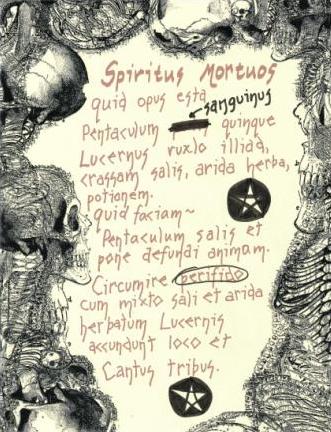 Spiritus Mortuos
quid opus esta
sanguinus
Pentaculum quinque
Lucernus ruxlo illiad,
crassam salis, arida herba,
potionem.
quid faciam~
Pentaculum salis et
pone defundi animam.
Circumire perifido
cum mixto sali et arida
herbatum Lucernis
accundunt loco et
Cantus tribus.